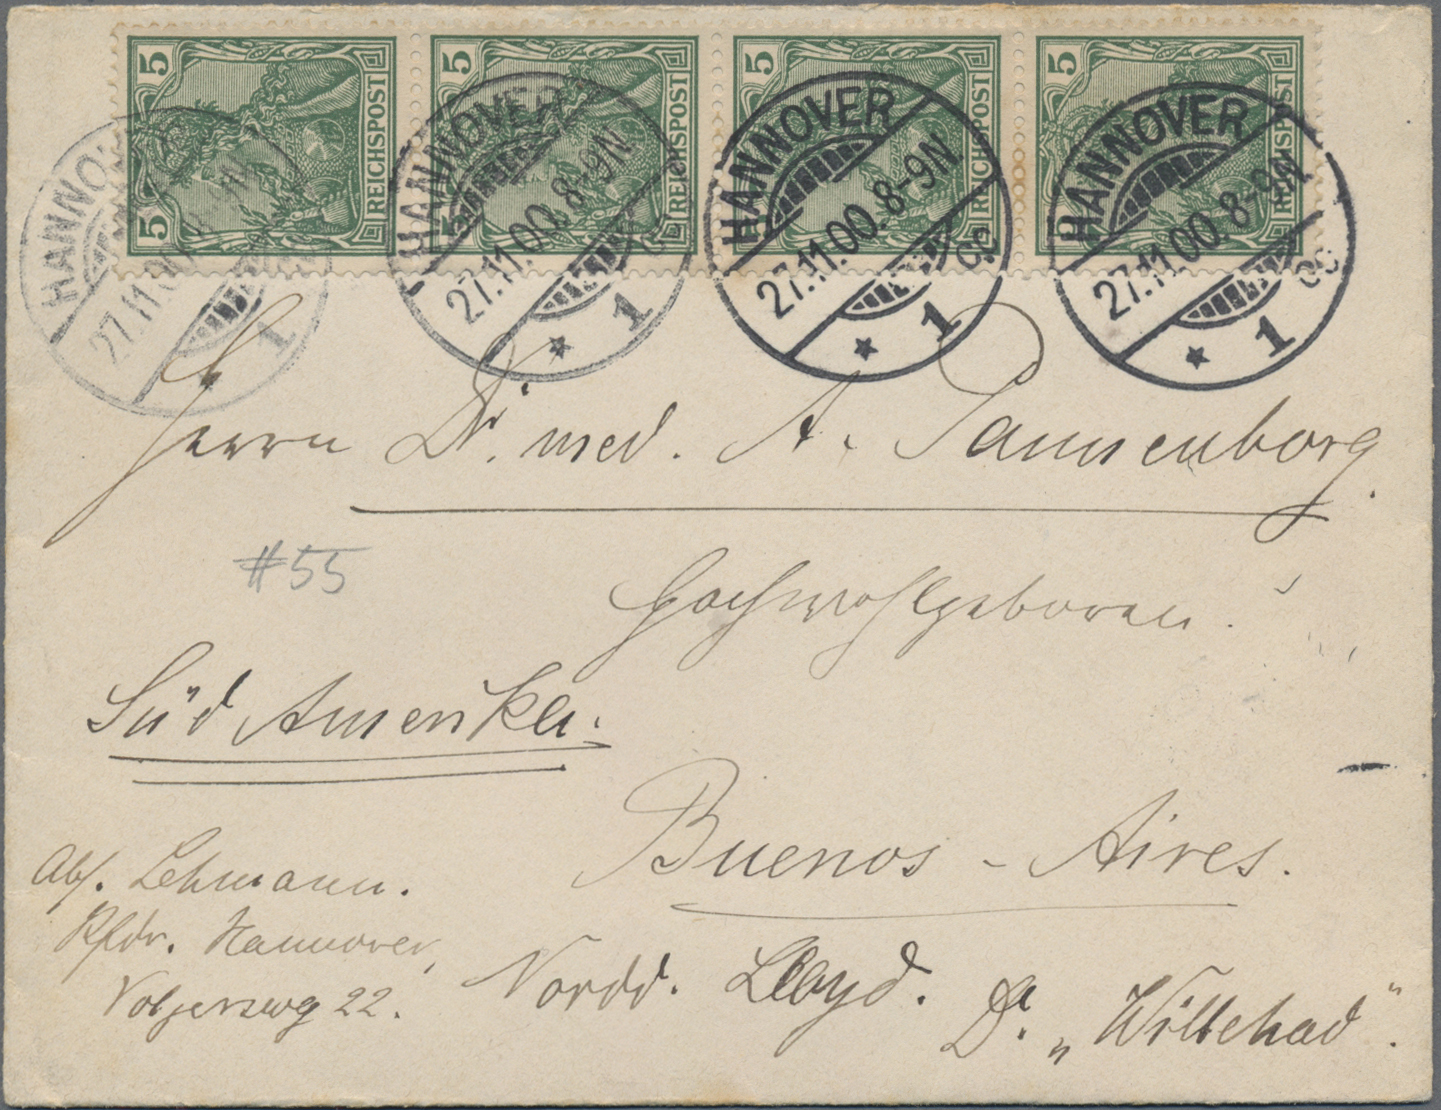 5 5 REICHSPOST 5 5 REICHSPOST 5 5 REICHSPOST 5 5 REICHSPOST
HANNOVER 27.11.00. 8-9N. 1 * cc
HANNOVER 27.11.00. 8-9N. 1 * cc
HANNOVER 27.11.00. 8-9N. 1 * cc
HANNOVER 27.11.00. 8-9N. 1 * cc
Herrn Dr. med. A. Pannenborg.
#55
Hochwohlgeboren.
Süd Amerika.
Buenos-Aires.
Abs. Lehmann.
Hannover,
Volgersweg 22.
Nordd. Lloyd.
Dr. „Willehad".